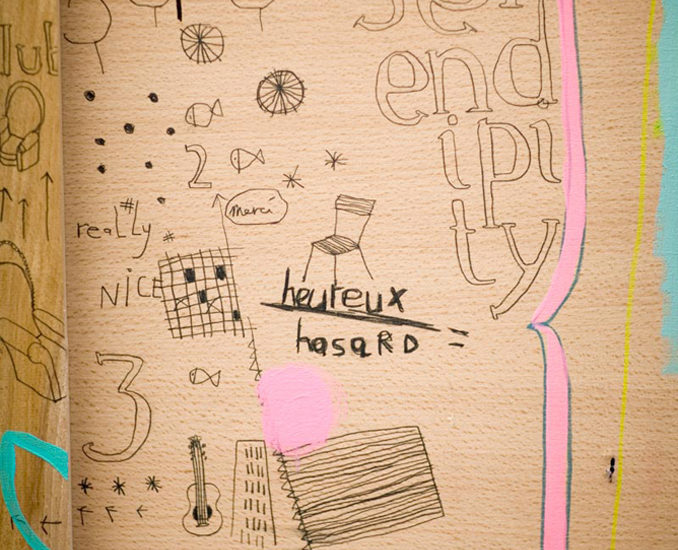 ser
end
ipi
ty
2
merci
#
reaLLy
#
NiCE
heureux
hasaRD
=
3